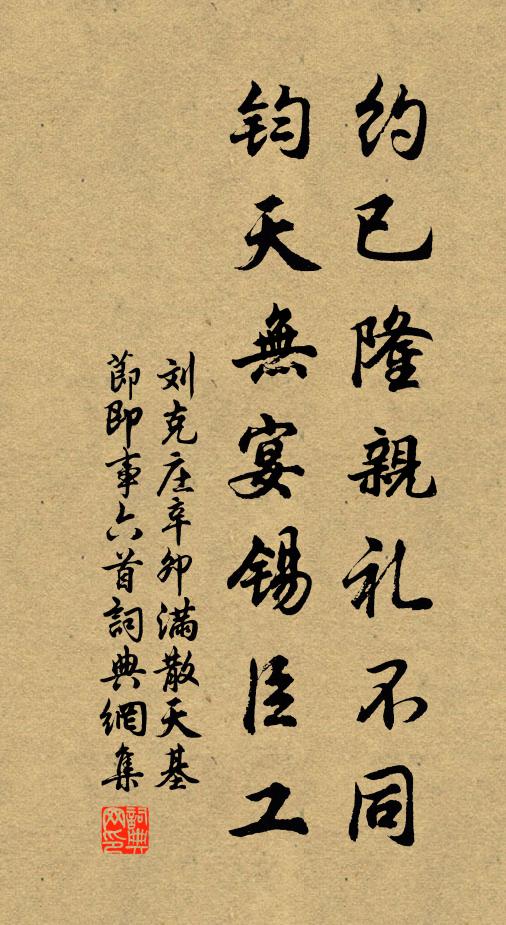 约已隆親礼不同
钧天無宴锡臣工
刘克庄辛卯满散天基
節即事六首詞典網集
詞典网印